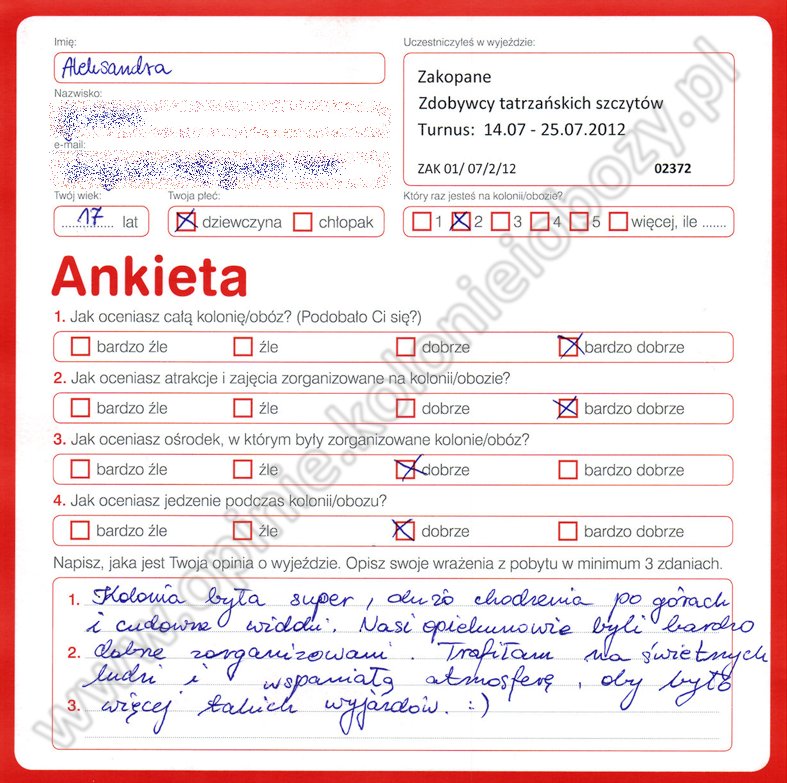 Imię:
Aleksandra
Uczestniczyłeś w wyjeździe:
Zakopane
Zdobywcy tatrzańskich szczytów
Turnus: 14.07 - 25.07.2012
ZAK 01/ 07/2/12 02372
Nazwisko:
e-mail:
Twój wiek:
17 lat
Twoja płeć:
dziewczyna chłopak
Który raz jesteś na kolonii/obozie?
1 2 3 4 5 więcej, ile .......
Ankieta
1. Jak oceniasz całą kolonię/obóz? (Podobało Ci się?)
bardzo źle źle dobrze bardzo dobrze
2. Jak oceniasz atrakcje i zajęcia zorganizowane na kolonii/obozie?
bardzo źle źle dobrze bardzo dobrze
3. Jak oceniasz ośrodek, w którym były zorganizowane kolonie/obóz?
bardzo źle źle dobrze bardzo dobrze
4. Jak oceniasz jedzenie podczas kolonii/obozu?
bardzo źle źle dobrze bardzo dobrze
Napisz, jaka jest Twoja opinia o wyjeździe. Opisz swoje wrażenia z pobytu w minimum 3 zdaniach.
1. Kolonia była super, dużo chodzenia po górach
i cudowne widoki. Nasi opiekunowie byli bardzo
2. dobrze zorganizowani. Trafiłam na świetnych
ludzi i wspaniałą atmosferę, oby było
3. więcej takich wyjazdów. :)
www.opinie.kolonieiobozy.pl